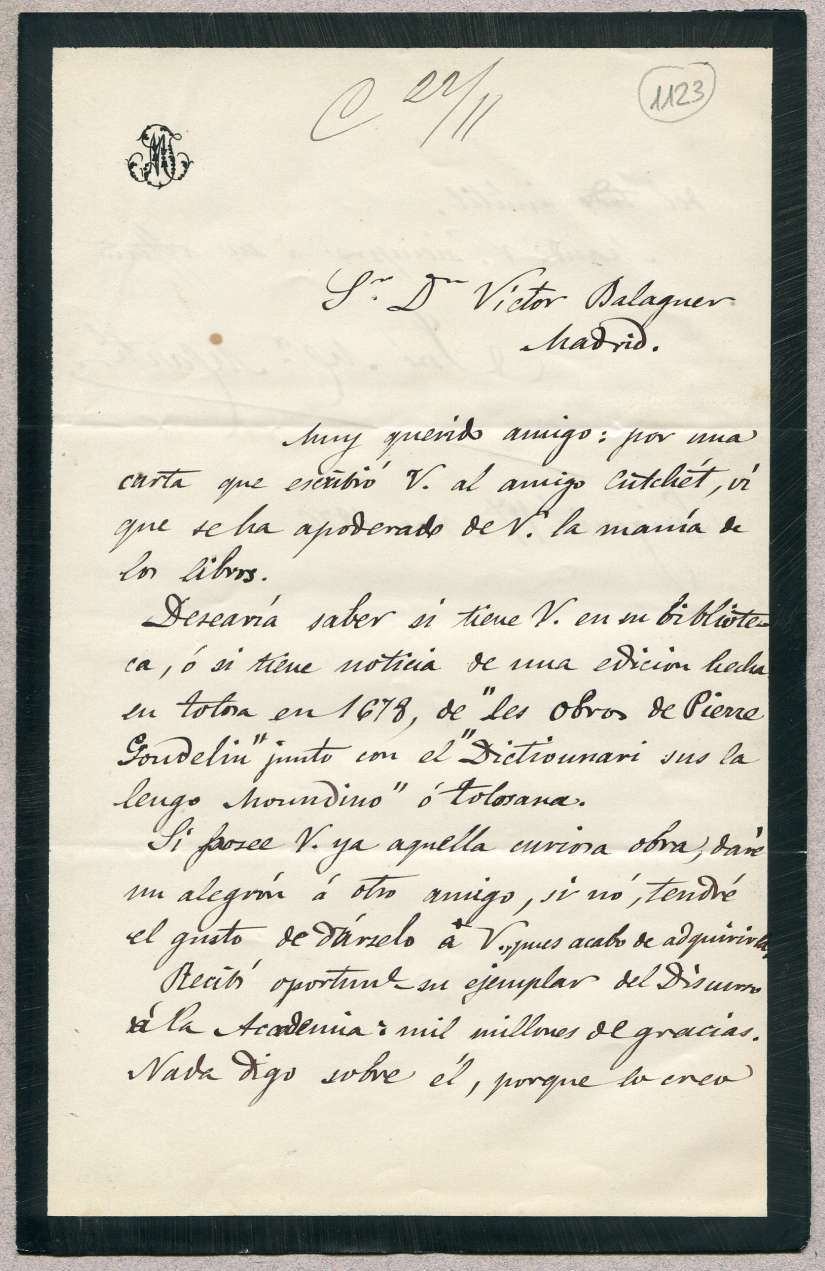 C 22/11
1123
Sr. Dn Víctor Balaguer
Madrid.
Muy querido amigo: por una
carta que escribió V. al amigo Cutchét, ví
que se ha apoderado de V. la manía de
los libros.
Desearía saber si tiene V. en su bibliote-
ca, ó si tiene noticia de una edicion hecha
en tolosa en 1678, de "les obros de Pierre
Goudelin" junto con el "Dictiounari sus la
lengo Moundino" ó tolosana.
Si posee V. ya aquella curiosa obra, daré
un alegrón á otro amigo, si nó, tendré
el gusto de dárselo á V., pues acabo de adquirirla,
Recibí oportunte su ejemplar del Discurso
á la Academia: mil millones de gracias.
Nada digo sobre él, porque lo creo